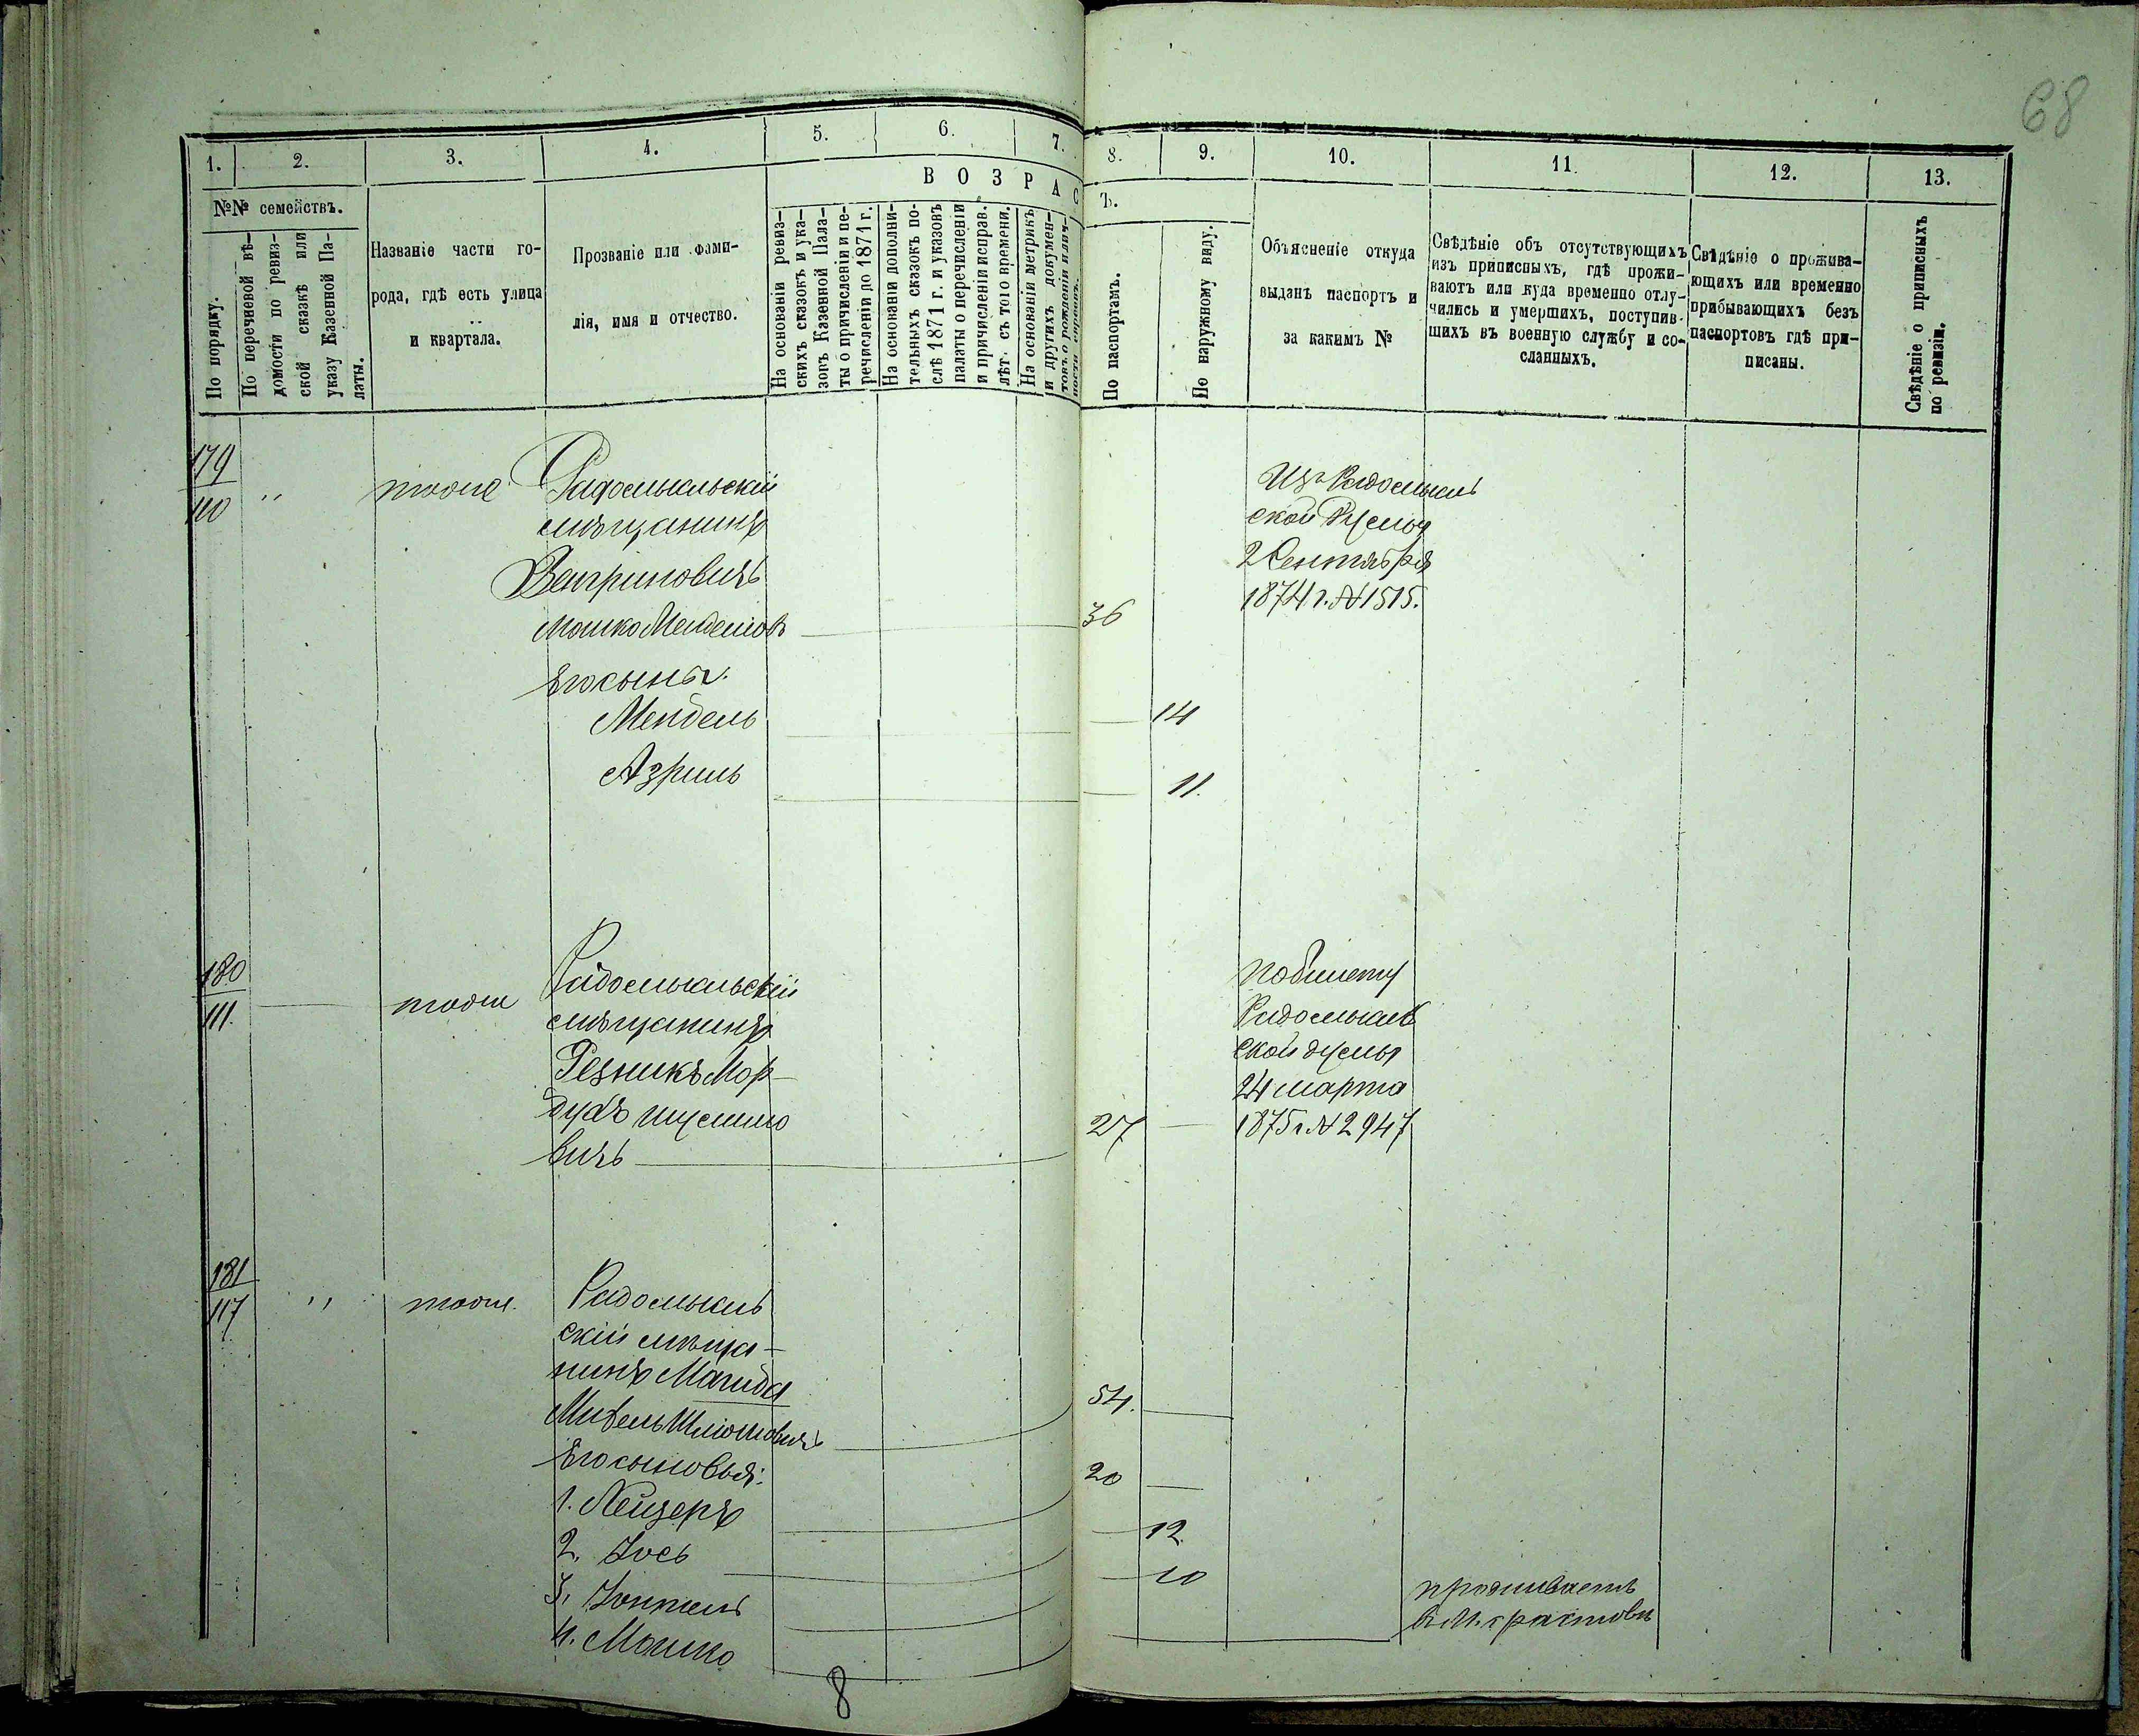 68
1. 2. 3. 4. 5. 6. 7.
8. 9. 10. 11. 12. 13.
В О З Р А С
Ъ.
№№ семействъ.
По порядку.
По перечневой вѣ-
домости по ревиз-
ской сказкѣ или
указу Казенной Па-
латы.
Названіе части го-
рода, гдѣ есть улица
и квартала.
Прозваніе или фами-
лія, имя и отчество.
На основаніи ревиз-
скихъ сказокъ и ука-
зовъ Казенной Пала-
ты о причисленіи и пе-
речисленіи до 1871 г.
На основаніи дополни-
тельныхъ сказокъ по-
слѣ 1871 г. и указовъ
палаты о перечисленіи
и причисленіи исправ.
лѣт. съ того времени.
На основаніи метрикъ
и другихъ докумен-
товъ о рожденіи и лич-
ности евреевъ.
По паспортамъ.
По наружному виду.
Объясненіе откуда
выданъ паспортъ и
за какимъ №
Свѣдѣніе объ отсутствующихъ
изъ приписныхъ, гдѣ прожи-
ваютъ или куда временно отлу-
чились и умершихъ, поступив-
шихъ въ военную службу и со-
сланныхъ.
Свѣдѣніе о прожива-
ющихъ или временно
прибывающихъ безъ
паспортовъ гдѣ при-
писаны.
Свѣдѣніе о приписныхъ
по ревизіи.
179
110 " тоже Радомысльскій
мѣщанинъ
Венгриновичъ
Мошко Менделевъ
36
Изъ Радомысль
ской Думы
2 Сентября
1874 г. № 1515.
Его сыны
Мендель
14
Азриль
11.
180
111. тоже Радомысльскій
мѣщанинъ
Резникъ Мор-
духъ
вичъ
27
по билету
Радомысль
ской думы
24 марта
1875 г № 2947
181
117 " тоже. Радомысль
скій мѣща-
нинъ Магида
Шлiомовичъ
54.
Его сыновья:
1. Лейзеръ
20
2. Іось
12
3. Зонтель
10
4. Мошко
проживаетъ
8